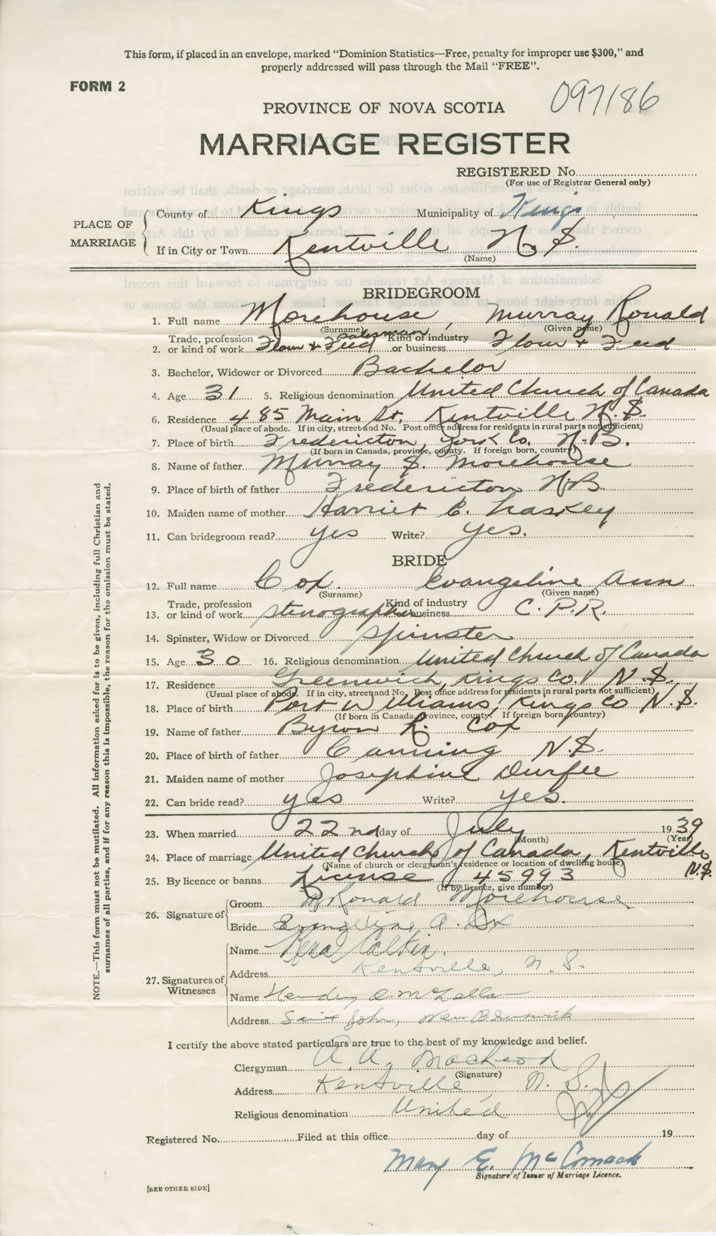 This form, if placed in an envelope, marked "Dominion Statistics—Free, penalty for improper use $300," and
properly addressed will pass through the Mail "FREE".
FORM 2
097186
PROVINCE OF NOVA SCOTIA
MARRIAGE REGISTER
REGISTERED No.
(For use of Registrar General only)
PLACE OF MARRIAGE
County of Kings Municipality of Kings
If in City or Town Kentville N.S.
(Name)
BRIDEGROOM
1. Full name Morehouse, Murray Ronald
(Surname) (Given name)
2. Trade, profession or kind of work Flour & Feed salesman Kind of industry or business Flour & Feed
3. Bachelor, Widower or Divorced Bachelor
4. Age 31 5. Religious denomination United Church of Canada
6. Residence 485 Main St. Kentville N.S.
(Usual place of abode. If in city, street and No. Post office address for residents in rural parts not sufficient)
7. Place of birth Fredericton, York Co. N.B.
(If born in Canada, province, county. If foreign born, country)
8. Name of father Murray S. Morehouse
9. Place of birth of father Fredericton N.B.
10. Maiden name of mother Harriet E.
11. Can bridegroom read? yes Write? yes.
BRIDE
12. Full name Cox Evangeline Ann
(Surname) (Given name)
13. Trade, profession or kind of work stenographer Kind of industry or business C.P.R.
14. Spinster, Widow or Divorced spinster
15. Age 30 16. Religious denomination United Church of Canada
17. Residence Greenwich, Kings Co. N.S.
(Usual place of abode. If in city, street and No. Post office address for residents in rural parts not sufficient)
18. Place of birth Port Williams, Kings Co N.S.
(If born in Canada, province, county. If foreign born, country)
19. Name of father Byron R. Cox
20. Place of birth of father Canning N.S.
21. Maiden name of mother Josephine Durfee
22. Can bride read? yes Write? yes.
23. When married 22nd day of July 1939
(Month) (Year)
24. Place of marriage United Church of Canada, Kentville N.S.
(Name of church or clergyman's residence or location of dwelling house)
25. By licence or banns License 45993
(If by licence, give number)
26. Signature of
Groom M Ronald Morehouse
Bride Evangeline A. Cox
27. Signatures of Witnesses
Name
Address Kentville, N.S.
Name
Address Saint John, New Brunswick
I certify the above stated particulars are true to the best of my knowledge and belief.
Clergyman A. A. MacLeod
(Signature)
Address Kentville N.S.
Religious denomination United
Registered No. Filed at this office day of 19
Mary E. McCormack
Signature of Issuer of Marriage Licence.
[SEE OTHER SIDE]
NOTE.—This form must not be mutilated. All information asked for is to be given, including full Christian and
surnames of all parties, and if for any reason this is impossible, the reason for the omission must be stated.